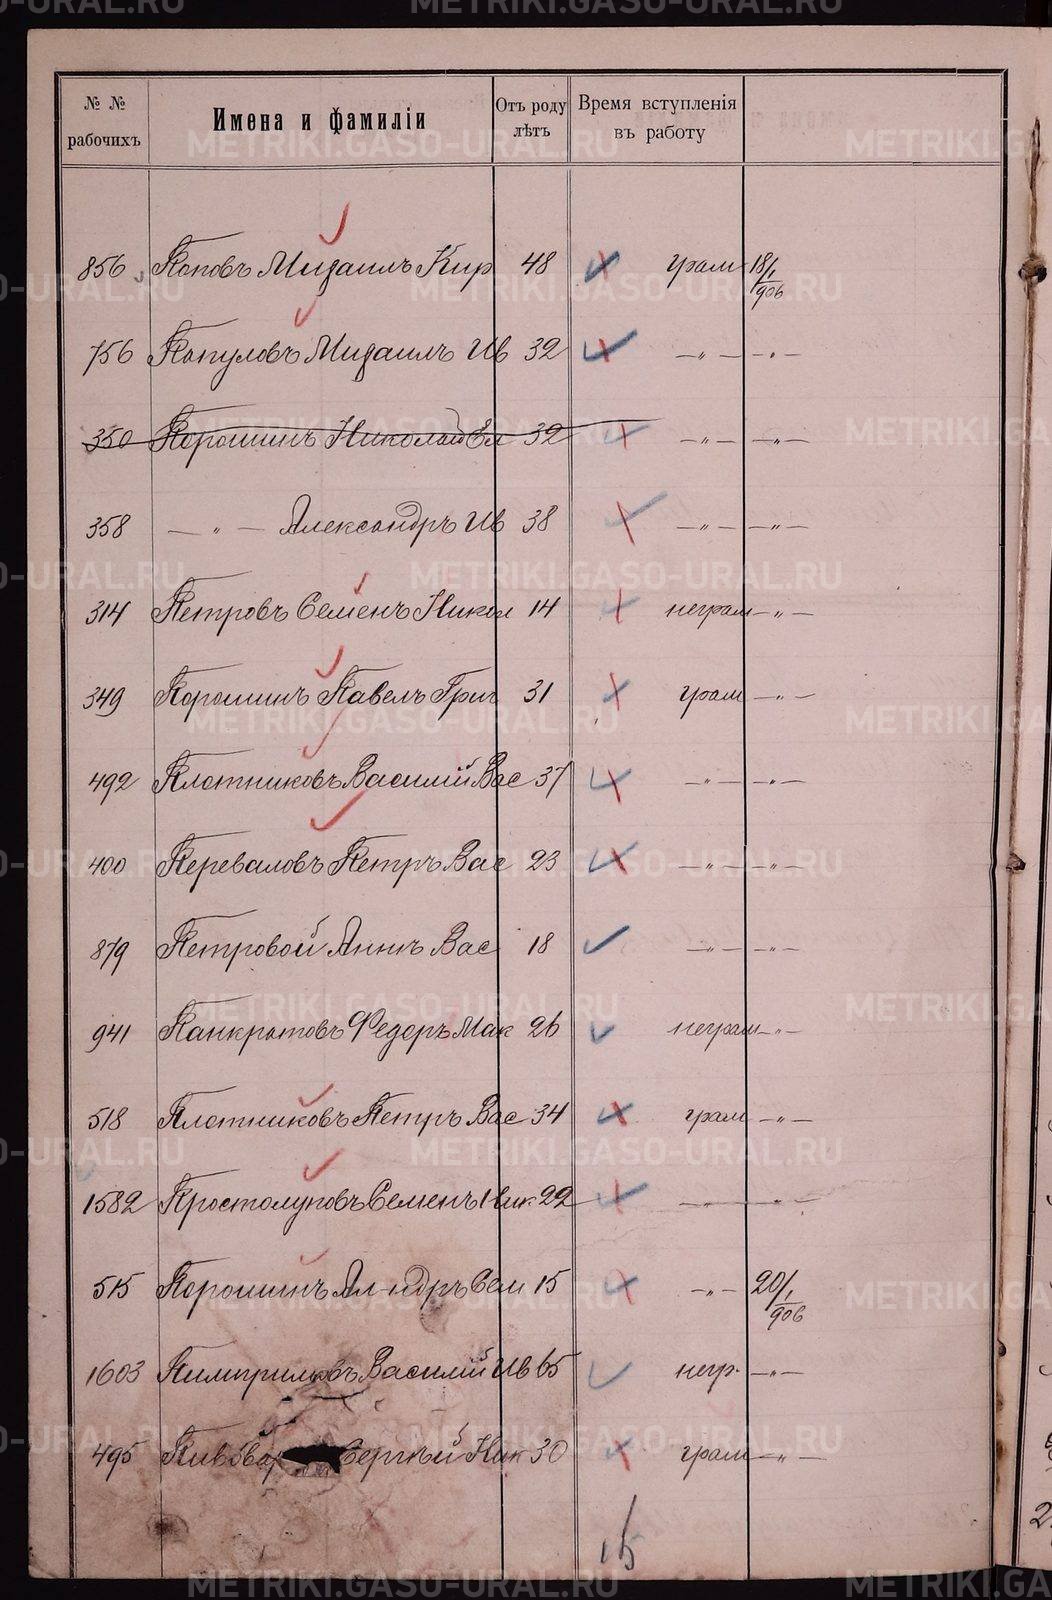 № № рабочихъ Имена и фамиліи Отъ роду лѣтъ Время вступленія въ работу
856 Поповъ Михаилъ Кир 48 грам 18/I 906
756 Популовъ Михаилъ Ив 32 — " — — " —
350 Порошинъ Николай Ел 32 — " — — " —
358 — " — Александръ Ив 38 — " — — " —
314 Петровъ Семенъ Никол 14 неграм — " —
349 Порошинъ Павелъ Григ 31 грам — " —
492 Плотниковъ Василій Вас 37 — " — — " —
400 Переваловъ Петръ Вас 23 — " — — " —
879 Петровой Аннъ Вас 18 — " — — " —
941 Панкратовъ Федоръ Мак 26 неграм — " —
518 Плотниковъ Петръ Вас 34 грам — " —
1582 Простолуповъ Семенъ Ник 22 — " — — " —
515 Порошинъ Ал-ндръ Сем 15 — " — 20/I 906
1603 Василій Ив 65 негр. — " —
495 Сергѣй Ник 30 грам — " —
15
METRIKI.GASO-URAL.RU